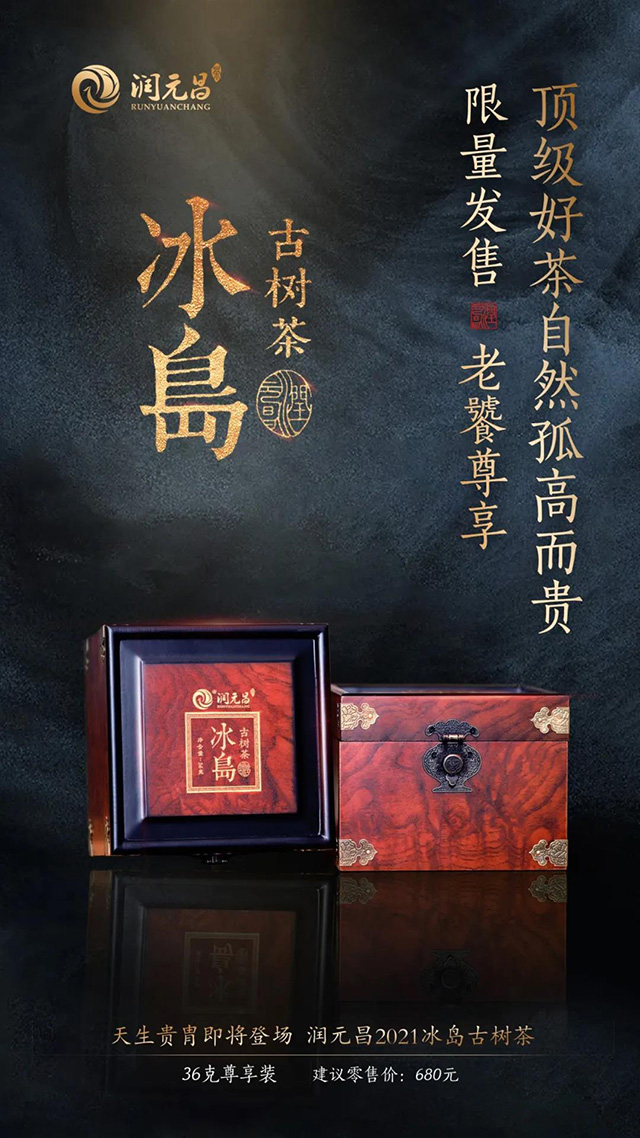 润元昌
RUNYUANCHANG
顶级好茶自然孤高而贵
限量发售
老饕尊享
冰島
古树茶
润元昌
RUNYUANCHANG
冰島
古树茶
天生贵胄即将登场 润元昌2021冰岛古树茶
36克尊享装 建议零售价：680元